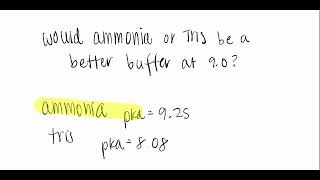 would ammonia or Tris be a
better buffer at 9.0?
ammonia pka = 9.25
tris pka = 8.08